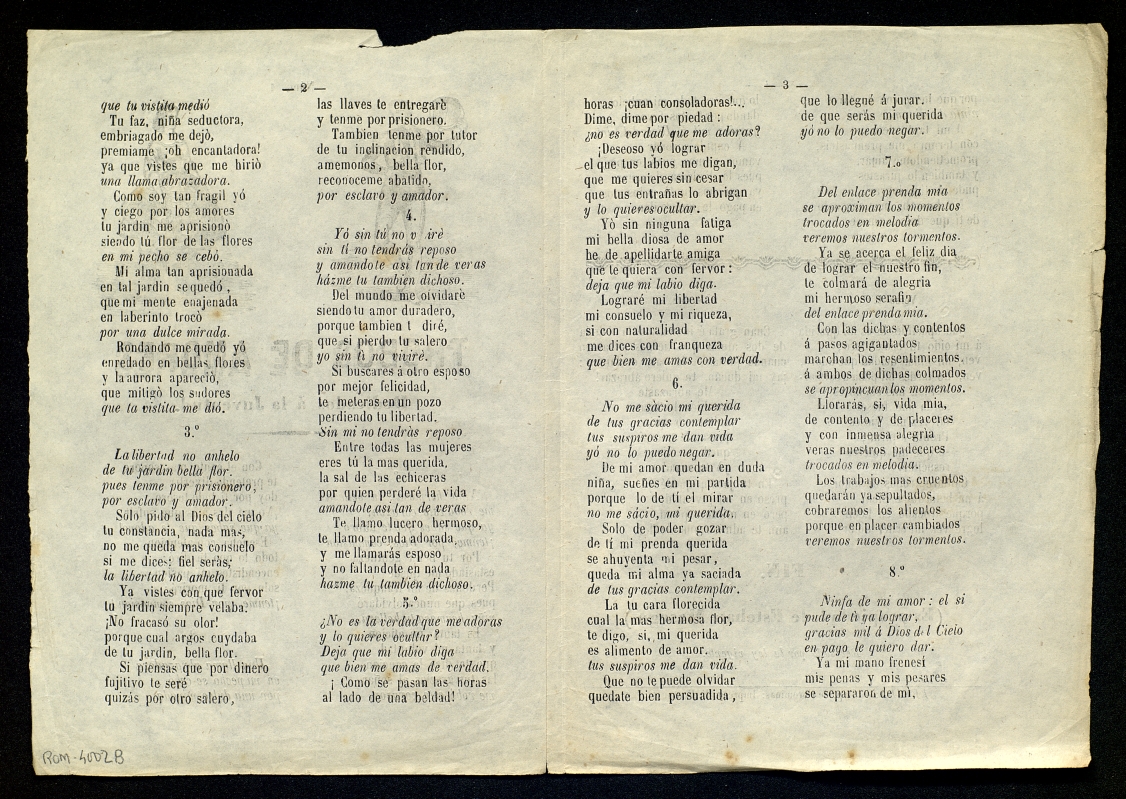 — 2 —
que tu vistita medió
Tu faz, niña seductora,
embriagado me dejò,
premiame ¡oh encantadora!
ya que vistes que me hiriò
una llama abrazadora.
Como soy tan fragil yó
y ciego por los amores
tu jardin me aprisionò
siendo tú flor de las flores
en mi pecho se cebò.
Mi alma tan aprisionada
en tal jardin se quedó ,
que mi mente enajenada
en laberinto trocò
por una dulce mirada.
Rondando me quedó yó
enredado en bellas flores
y la aurora apareciò,
que mitigò los sudores
que ta vistita me dió.
3.º
La libertad no anhelo
de tu jardin bella flor.
pues tenme por prisionero,
por esclavo y amador.
Solo pido al Dios del cielo
tu constancia, nada mas,
no me queda mas consuelo
si me dices: fiel seràs;
la libertad no anhelo.
Ya vistes con que fervor
tu jardin siempre velaba:
¡No fracasó su olor!
porque cual argos cuydaba
de tu jardin, bella flor.
Si piensas que por dinero
fujitivo te seré
quizás por otro salero,
las llaves te entregarè
y tenme por prisionero.
Tambien tenme por tutor
de tu inclinacion rendido,
amemonos, bella flor,
reconoceme abatido,
por esclavo y amador.
4.
Yó sin tú no v irè
sin tí no tendrás reposo
y amandote asi tan de veras
házme tu tambien dichoso.
Del mundo me olvidarè
siendo tu amor duradero,
porque tambien t diré,
que si pierdo tu salero
yo sin tì no vivirè.
Si buscares á otro esposo
por mejor felicidad,
te meteras en un pozo
perdiendo tu libertad.
Sin mi no tendràs reposo
Entre todas las mujeres
eres tú la mas querida,
la sal de las echiceras
por quien perderé la vida
amandote asi tan de veras
Te llamo lucero hermoso,
te llamo prenda adorada,
y me llamarás esposo
y no faltandote en nada
hazme tu tambien dichoso.
5.º
¿No es la verdad que me adoras
y lo quieres ocultar?
Deja que mi labio diga
que bien me amas de verdad.
¡ Como se pasan las horas
al lado de una beldad!
— 3 —
horas ¡cuan consoladoras!...
Dime, dime por piedad :
¿no es verdad que me adoras?
¡Deseoso yó lograr
el que tus labios me digan,
que me quieres sin cesar
que tus entrañas lo abrigan
y lo quieres ocultar.
Yò sin ninguna fatiga
mi bella diosa de amor
he de apellidarte amiga
que te quiera con fervor :
deja que mi labio diga.
Lograré mi libertad
mi consuelo y mi riqueza,
si con naturalidad
me dices con franqueza
que bien me amas con verdad.
6.
No me sàcio mi querida
de tus gracias contemplar
tus suspiros me dan vida
yó no lo puedo negar.
De mi amor quedan en duda
niña, sueñes en mi partida
porque lo de tí el mirar
no me sácio, mi querida.
Solo de poder gozar
de tí mi prenda querida
se ahuyenta mi pesar,
queda mi alma ya saciada
de tus gracias contemplar.
La tu cara florecida
cual la mas hermosa flor,
te digo, si, mi querida
es alimento de amor.
tus suspiros me dan vida.
Que no te puede olvidar
quedate bien persuadida ,
que lo llegué á jurar.
de que serás mi querida
yó no lo puedo negar.
7.º
Del enlace prenda mia
se aproximan los momentos
trocados en melodia
veremos nuestros tormentos.
Ya se acerca el feliz dia
de lograr el nuestro fin,
te colmará de alegria
mi hermoso serafin
del enlace prenda mia.
Con las dichas y contentos
á pasos agigantados
marchan los resentimientos.
á ambos de dichas colmados
se apropincuan los momentos.
Llorarás, si, vida mia,
de contento y de placeres
y con inmensa alegria
veras nuestros padeceres
trocados en melodia.
Los trabajos mas cruentos
quedarán ya sepultados,
cobraremos los alientos
porque en placer cambiados
veremos nuestros tormentos.
8.º
Ninfa de mi amor : el si
pude de tì ya lograr,
gracias mil á Dios del Cielo
en pago le quiero dar.
Ya mi mano frenesí
mis penas y mis pesares
se separaron de mi,
ROM-4002B